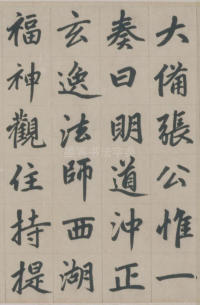 大備張公惟一
奏曰明道沖正
玄逸法師西湖
福神觀住持提